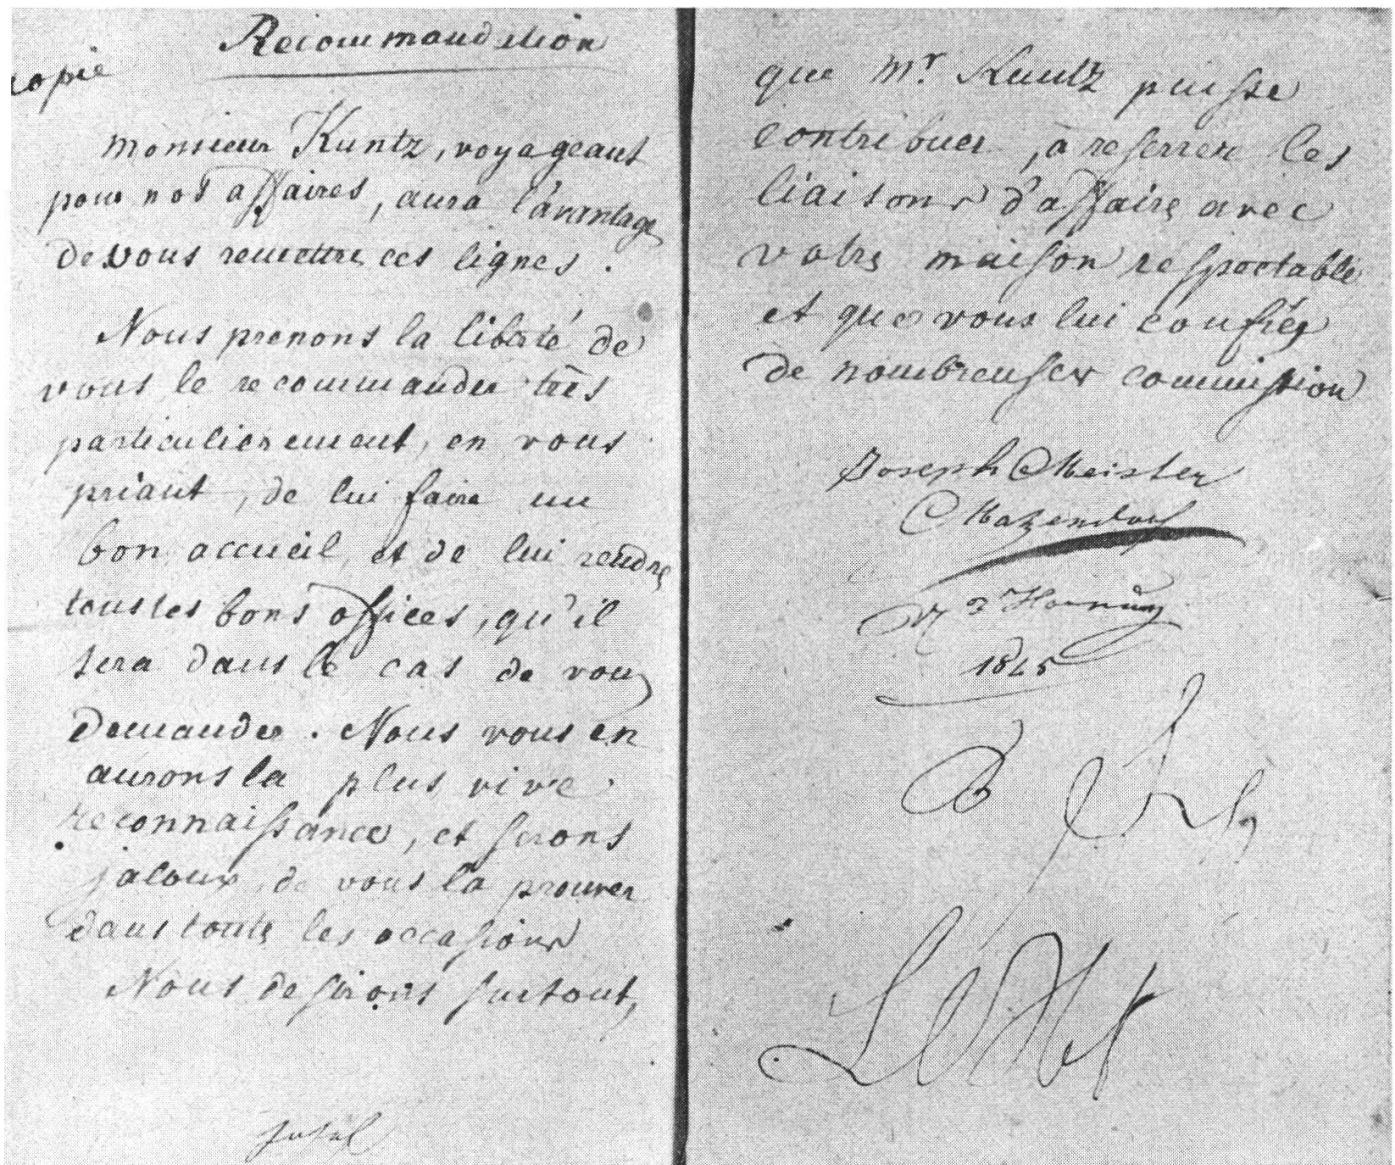 Recommandation
copie
Monsieur Kuntz, voyageant
pour nos affaires, aura l'avantage
de vous remettre ces lignes.
Nous prenons la liberté de
vous le recommander très
particulierement, en vous
priant, de lui faire un
bon accueil, et de lui rendre
tous les bons offices, qu'il
sera dans le cas de vous
demander. Nous vous en
aurons la plus vive
reconnaissance, et serons
jaloux, de vous la prouver
dans toute les occasions
Nous desirons surtout,
que Mr Kuntz puisse
contribuer, a reserrere les
liaisons d'affaire avec
votre maison respectable
et que vous lui confiéz
de nombreuses commission
Joseph Meister
Matzendorf
Hornung
1845